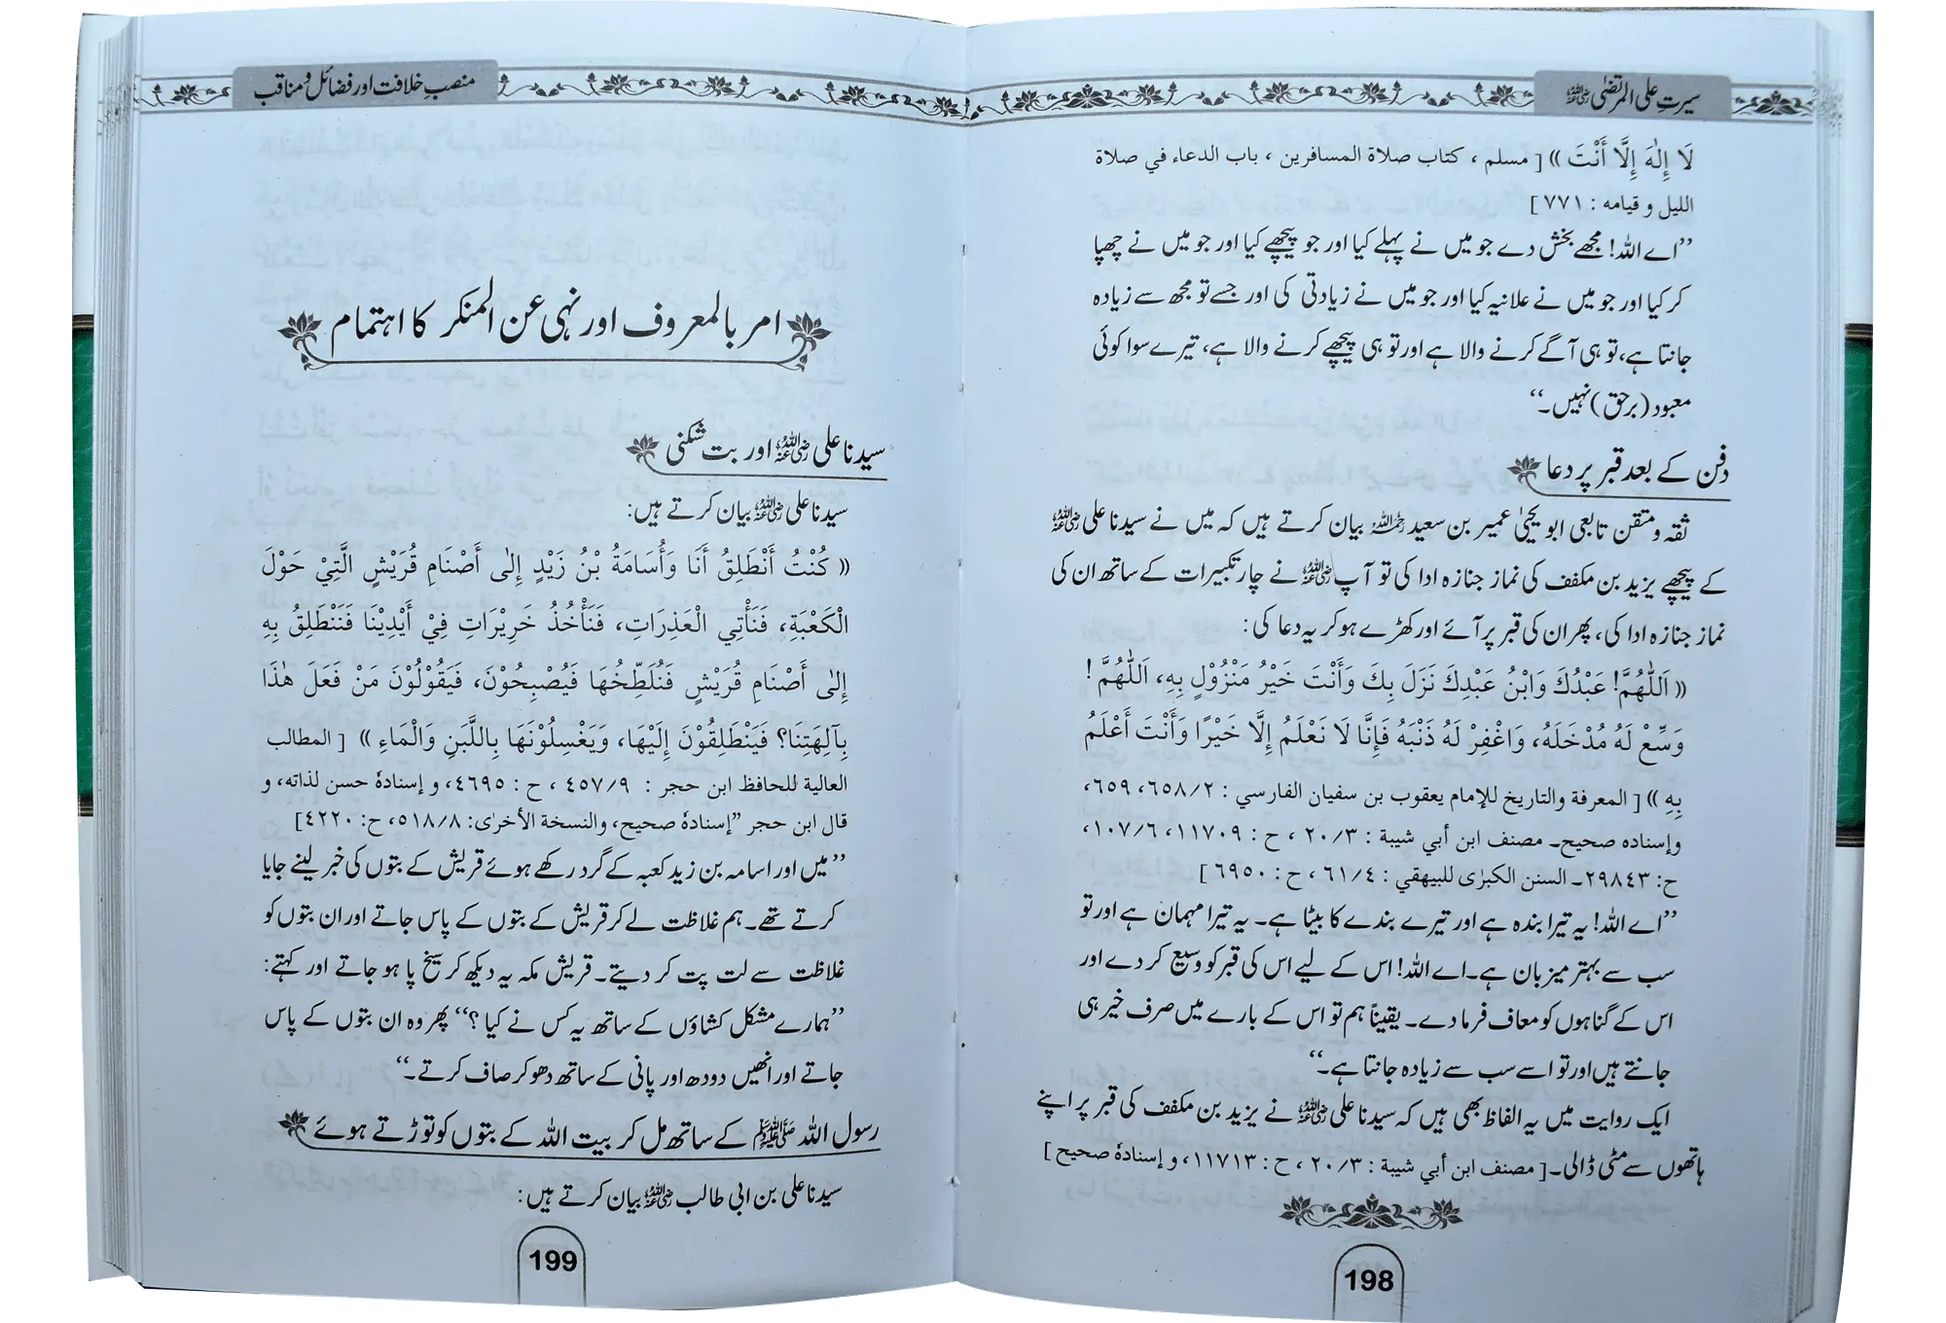 سیرتِ علی المرتضیٰ رضی اللہ عنہ
لَا إِلٰهَ إِلَّا أَنْتَ )) [ مسلم ، كتاب صلاة المسافرين ، باب الدعاء في صلاة
الليل و قيامه : ٧٧١ ]
’’اے اللہ! مجھے بخش دے جو میں نے پہلے کیا اور جو پیچھے کیا اور جو میں نے چھپا
کر کیا اور جو میں نے علانیہ کیا اور جو میں نے زیادتی کی اور جسے تو مجھ سے زیادہ
جانتا ہے، تو ہی آگے کرنے والا ہے اور تو ہی پیچھے کرنے والا ہے، تیرے سوا کوئی
معبود (برحق) نہیں۔‘‘
دفن کے بعد قبر پر دعا
ثقہ و متقن تابعی ابو یحییٰ عمیر بن سعید رحمہ اللہ بیان کرتے ہیں کہ میں نے سیدنا علی رضی اللہ عنہ
کے پیچھے یزید بن مکفف کی نماز جنازہ ادا کی تو آپ رضی اللہ عنہ نے چار تکبیرات کے ساتھ ان کی
نماز جنازہ ادا کی، پھر ان کی قبر پر آئے اور کھڑے ہو کر یہ دعا کی:
(( اَللّٰهُمَّ! عَبْدُكَ وَابْنُ عَبْدِكَ نَزَلَ بِكَ وَأَنْتَ خَيْرُ مَنْزُوْلٍ بِهِ، اَللّٰهُمَّ !
وَسِّعْ لَهُ مُدْخَلَهُ، وَاغْفِرْ لَهُ ذَنْبَهُ فَإِنَّا لَا نَعْلَمُ إِلَّا خَيْرًا وَأَنْتَ أَعْلَمُ
بِهِ )) [ المعرفة والتاريخ للإمام يعقوب بن سفيان الفارسي : ٦٥٨/٢، ٦٥٩،
وإسناده صحيح۔ مصنف ابن أبي شيبة : ٢٠/٣ ، ح : ١١٧٠٩، ١٠٧/٦،
ح: ٢٩٨٤٣۔ السنن الكبرٰى للبيهقي : ٦١/٤ ، ح : ٦٩٥٠ ]
’’اے اللہ! یہ تیرا بندہ ہے اور تیرے بندے کا بیٹا ہے۔ یہ تیرا مہمان ہے اور تو
سب سے بہتر میزبان ہے۔ اے اللہ! اس کے لیے اس کی قبر کو وسیع کر دے اور
اس کے گناہوں کو معاف فرما دے۔ یقیناً ہم تو اس کے بارے میں صرف خیر ہی
جانتے ہیں اور تو اسے سب سے زیادہ جانتا ہے۔‘‘
ایک روایت میں یہ الفاظ بھی ہیں کہ سیدنا علی رضی اللہ عنہ نے یزید بن مکفف کی قبر پر اپنے
ہاتھوں سے مٹی ڈالی۔ [ مصنف ابن أبي شيبة : ٢٠/٣ ، ح : ١١٧١٣، و إسنادهٗ صحيح ]
198
منصبِ خلافت اور فضائل و مناقب
امر بالمعروف اور نہی عن المنکر کا اہتمام
سیدنا علی رضی اللہ عنہ اور بت شکنی
سیدنا علی رضی اللہ عنہ بیان کرتے ہیں:
(( كُنْتُ أَنْطَلِقُ أَنَا وَأُسَامَةُ بْنُ زَيْدٍ إِلٰى أَصْنَامِ قُرَيْشٍ الَّتِيْ حَوْلَ
الْكَعْبَةِ، فَنَأْتِي الْعَذِرَاتِ، فَنَأْخُذُ خَرِيْرَاتِ فِيْ أَيْدِيْنَا فَنَنْطَلِقُ بِهِ
إِلٰى أَصْنَامِ قُرَيْشٍ فَنُلَطِّخُهَا فَيُصْبِحُوْنَ، فَيَقُوْلُوْنَ مَنْ فَعَلَ هٰذَا
بِآلِهَتِنَا؟ فَيَنْطَلِقُوْنَ إِلَيْهَا، وَيَغْسِلُوْنَهَا بِاللَّبَنِ وَالْمَاءِ )) [ المطالب
العالية للحافظ ابن حجر : ٤٥٧/٩ ، ح : ٤٦٩٥، و إسنادهٗ حسن لذاته، و
قال ابن حجر ”إسنادهٗ صحيح، والنسخة الأخرٰى: ٥١٨/٨، ح: ٤٢٢٠]
’’میں اور اسامہ بن زید کعبہ کے گرد رکھے ہوئے قریش کے بتوں کی خبر لینے جایا
کرتے تھے۔ ہم غلاظت لے کر قریش کے بتوں کے پاس جاتے اور ان بتوں کو
غلاظت سے لت پت کر دیتے۔ قریش مکہ یہ دیکھ کر سیخ پا ہو جاتے اور کہتے:
’’ہمارے مشکل کشاؤں کے ساتھ یہ کس نے کیا ؟‘‘ پھر وہ ان بتوں کے پاس
جاتے اور انھیں دودھ اور پانی کے ساتھ دھو کر صاف کرتے۔‘‘
رسول اللہ ﷺ کے ساتھ مل کر بیت اللہ کے بتوں کو توڑتے ہوئے
سیدنا علی بن ابی طالب رضی اللہ عنہ بیان کرتے ہیں:
199